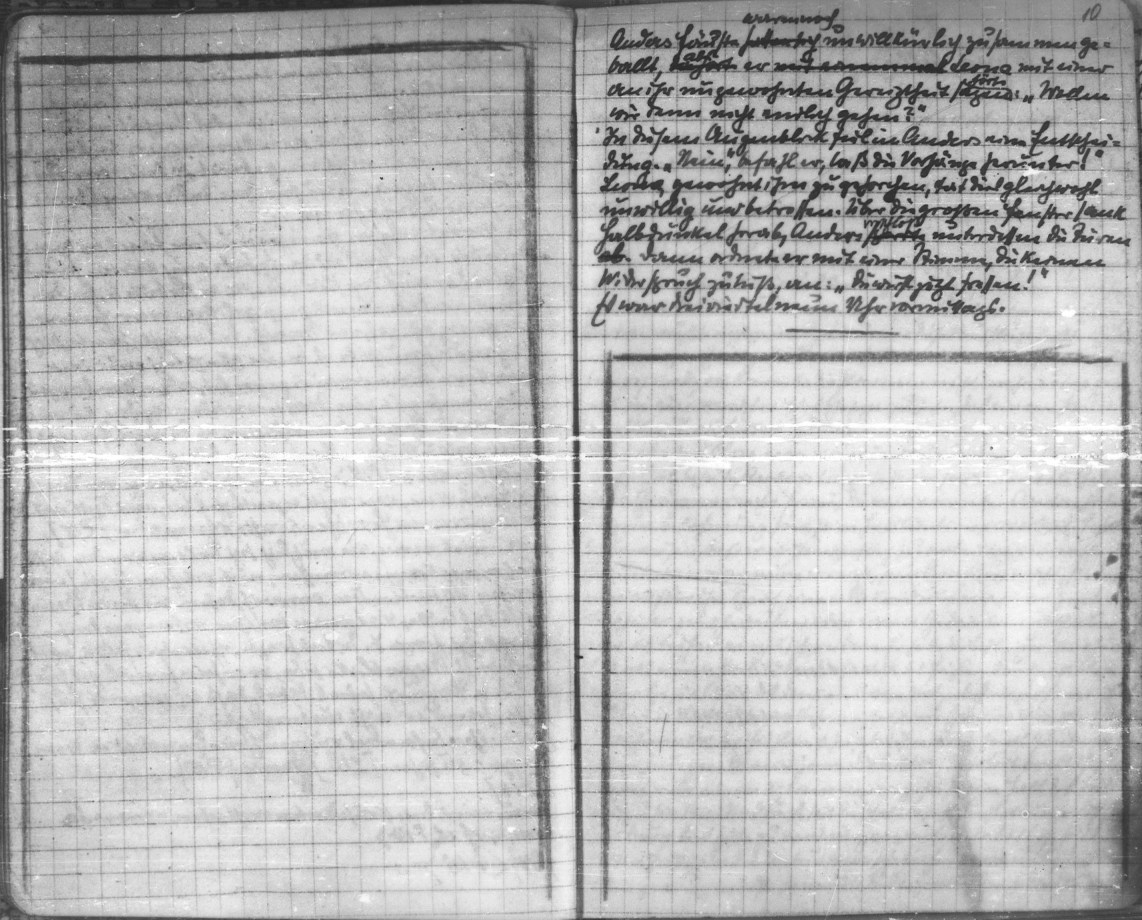 10
waren noch
Anders Fäuste unwillkürlich zusammenge-
ballt, als er Leona mit einer
an ihr ungewohnten Gereiztheit hörte: „Wollen
wir denn nicht endlich gehen?"
In diesem Augenblick fiel in Anders eine Entschei-
dung. „Nein", befahl er, „laß die Vorhänge herunter!"
Leona, gewohnt ihm zu gehorchen, tat dies gleichwohl
unwillig und betroffen. Über die großen Fenster sank
Halbdunkel herab, Anders unterdessen die Türen
ab. Dann ordnete er mit einer Stimme, die keinen
Widerspruch zuließ, an: „Du wirst jetzt essen!"
Es war dreiviertel neun Uhr vormittags.